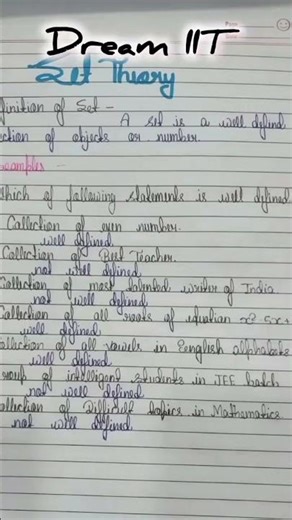 Dream IIT
Set Theory
finition of Set -
A set is a well defind
ection of objects or number.
xamples :-
hich of following statements is well defined
Collection of even number.
well defined
Collection of Best Teacher.
not well defined
Collection of most talented writer of India
not well defined
Collection of all roots of equation x² 5x+
well defined
ollection of all vowels in English alphabets
well defined
roup of intelligent students in JEE batch
not well defined
ollection of Difficult topics in Mathematics
not well defined